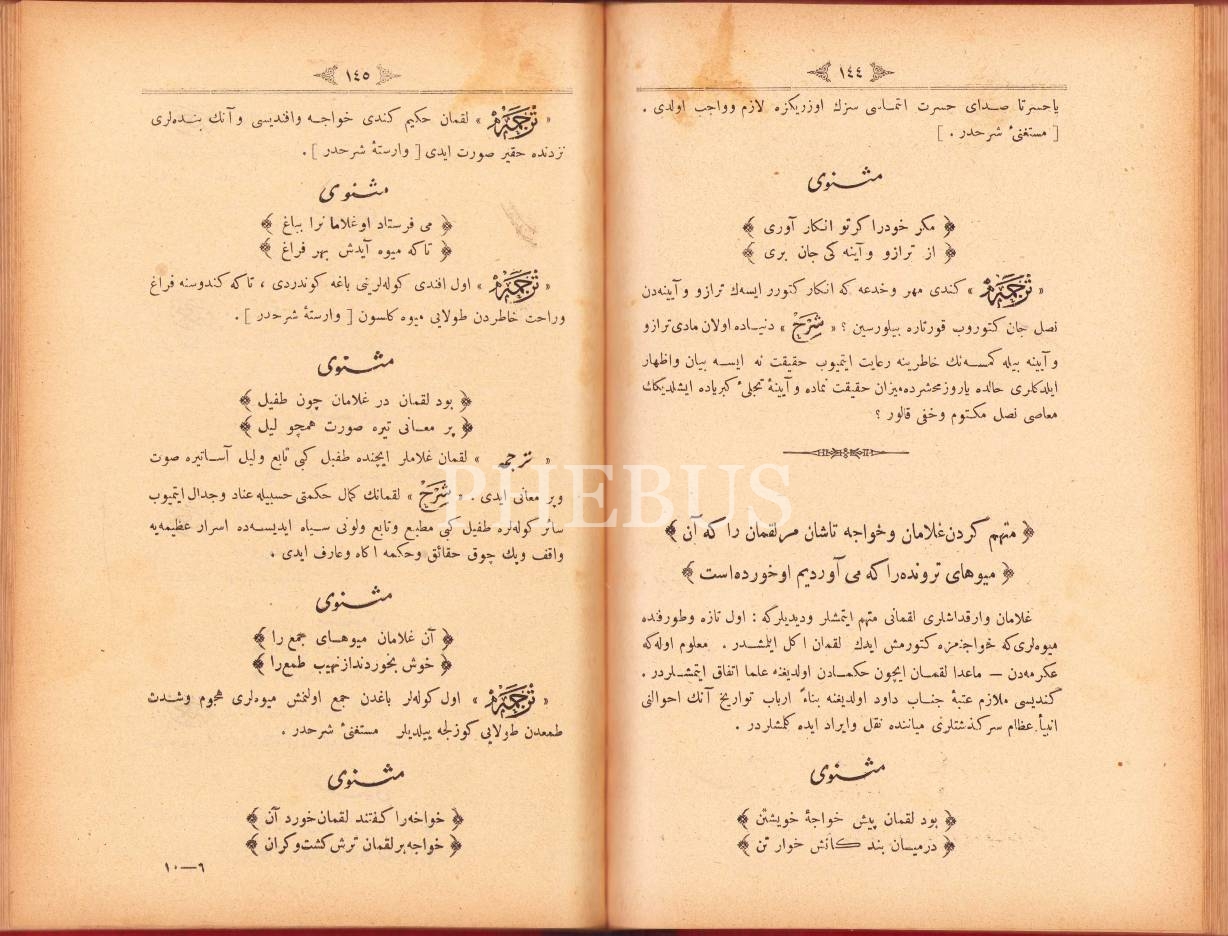 ١٤٤
ياحسرتا صداى حسرت اتماسى سزك اوزريكزه لازم وواجب اولدى .
[ مستغنئ شرحدر . ]
مثنوى
﴿ مكر خودرا كرتو انكار آورى ﴾
﴿ از ترازو وآينه كى جان برى ﴾
« ترجمه » كندى مهر وخدعه كه انكار كتورر ايسه‌ك ترازو وآيينه‌دن
نصل جان كتوروب قورتاره بيلورسين ؟ « شرح » دنياده اولان مادى ترازو
وآيينه بيله كمسه‌نك خاطرينه رعايت ايتميوب حقيقت نه ايسه بيان واظهار
ايلدكلرى حالده ياروز محشرده ميزان حقيقت نماده وآيينهٔ تجلئ كبرياده ايشلديكك
معاصى نصل مكتوم وخفى قالور ؟
﴿ متهم كردن غلامان وخواجه تاشان مرلقمان را كه آن ﴾
﴿ ميوهاى ترونده‌را كه مى آورديم اوخورده‌است ﴾
غلامان وارقداشلرى لقمانى متهم ايتمشلر وديديلركه : اول تازه وطورفنده
ميوه‌لرى كه خواجه‌مزه كتورمش ايدك لقمان اكل ايلمشدر . معلوم اوله‌كه
عكرمه‌دن — ماعدا لقمان ايچون حكمادن اولديغنه علما اتفاق ايتمشلردر .
كنديسى ملازم عتبهٔ جناب داود اولديغنه بناءً ارباب تواريخ آنك احوالنى
انبيأ عظام سركذشتلرى مياننده نقل وايراد ايده كلمشلردر .
مثنوى
﴿ بود لقمان پيش خواجهٔ خويشتن ﴾
﴿ درميان بند كانش خوار تن ﴾
١٤٥
« ترجمه » لقمان حكيم كندى خواجه وافنديسى وآنك بنده‌لرى
نزدنده حقير صورت ايدى [ وارستهٔ شرحدر ] .
مثنوى
﴿ مى فرستاد اوغلامانرا بباغ ﴾
﴿ تاكه ميوه آيدش بهر فراغ ﴾
« ترجمه » اول افندى كوله‌لرينى باغه كوندردى ، تاكه كندوسنه فراغ
وراحت خاطردن طولايى ميوه كلسون [ وارستهٔ شرحدر ] .
مثنوى
﴿ بود لقمان در غلامان چون طفيل ﴾
﴿ پر معانى تيره صورت همچو ليل ﴾
« ترجمه » لقمان غلاملر ايچنده طفيل كبى تابع وليل آساتيره صوت
وپر معانى ايدى . « شرح » لقمانك كمال حكمتى حسبيله عناد وجدال ايتميوب
سائر كوله‌لره طفيل كبى مطيع وتابع ولونى سياه ايديسه‌ده اسرار عظيمه‌يه
واقف وپك چوق حقائق وحكمه اكاه وعارف ايدى .
مثنوى
﴿ آن غلامان ميوهاى جمع را ﴾
﴿ خوش بخوردند از نهيب طمع را ﴾
« ترجمه » اول كوله‌لر باغدن جمع اولنمش ميوه‌لرى هجوم وشدت
طمعدن طولايى كوزلجه ييلديلر مستغنئ شرحدر .
مثنوى
﴿ خواخه‌را كفتند لقمان خورد آن ﴾
﴿ خواجه برلقمان ترش كشت وكران ﴾
٦—١٠
PHEBUS